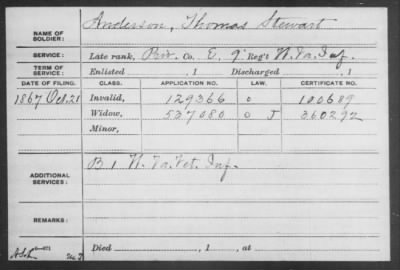 NAME OF SOLDIER: Anderson, Thomas Stewart
SERVICE: Late rank, Priv. Co. E, 9" Reg't W. Va. Inf.
TERM OF SERVICE: Enlisted , 1 Discharged , 1
DATE OF FILING. CLASS. APPLICATION NO. LAW. CERTIFICATE NO.
1867 Oct. 21 Invalid, 129366 o 100689
Widow, 537080 o J 360292
Minor,
ADDITIONAL SERVICES: B 1 W. Va. Vet. Inf.
REMARKS:
Died , 1 , at